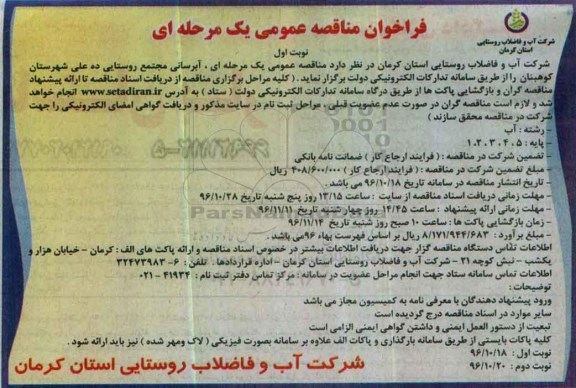 شرکت آب و فاضلاب روستایی
استان کرمان
فراخوان مناقصه عمومی یک مرحله ای
نوبت اول
شرکت آب و فاضلاب روستایی استان کرمان در نظر دارد مناقصه عمومی یک مرحله ای ، آبرسانی مجتمع روستایی ده علی شهرستان
کوهبنان را از طریق سامانه تدارکات الکترونیکی دولت برگزار نماید . ( کلیه مراحل برگزاری مناقصه از دریافت اسناد مناقصه تا ارائه پیشنهاد
مناقصه گران و بازگشایی پاکت ها از طریق درگاه سامانه تدارکات الکترونیکی دولت ( ستاد ) به آدرس www.setadiran.ir انجام خواهد
شد و لازم است مناقصه گران در صورت عدم عضویت قبلی، مراحل ثبت نام در سایت مذکور و دریافت گواهی امضای الکترونیکی را جهت
شرکت در مناقصه محقق سازند )
- رشته : آب
- پایه : ۱،۲،۳،۴،۵
- تضمین شرکت در مناقصه : ( فرایند ارجاع کار ) ضمانت نامه بانکی
- مبلغ تضمین شرکت در مناقصه : ( فرایند ارجاع کار ) ۴۰۸/۶۰۰/۰۰۰ ریال
- تاریخ انتشار مناقصه در سامانه تاریخ ۹۶/۱۰/۱۸ می باشد .
- مهلت زمانی دریافت اسناد مناقصه از سایت : ساعت ۱۳/۱۵ روز پنج شنبه تاریخ ۹۶/۱۰/۲۸
- مهلت زمانی ارائه پیشنهاد : ساعت ۱۴/۴۵ روز چهار شنبه تاریخ ۹۶/۱۱/۱۱
- زمان بازگشایی پاکت ها : ساعت ۱۰ صبح روز شنبه تاریخ ۹۶/۱۱/۱۴
- مبلغ برآورد : ۸/۱۷۱/۹۴۴/۶۸۳ ریال بر اساس فهرست بهاء ۹۶می باشد .
اطلاعات تماس دستگاه مناقصه گزار جهت دریافت اطلاعات بیشتر در خصوص اسناد مناقصه و ارائه پاکت های الف : کرمان - خیابان هزار و
یکشب - نبش کوچه ۲۱ - شرکت آب و فاضلاب روستایی استان کرمان - اداره قراردادها . تلفن : ۶- ۳۲۴۷۳۹۸۳
اطلاعات تماس سامانه ستاد جهت انجام مراحل عضویت در سامانه : مرکز تماس دفتر ثبت نام : ۴۱۹۳۴ - ۰۲۱
توضیحات :
ورود پیشنهاد دهندگان با معرفی نامه به کمیسیون مجاز می باشد
سایر موارد در اسناد مناقصه درج گردیده است
تبعیت از دستور العمل ایمنی و داشتن گواهی ایمنی الزامی است
کلیه پاکات بایستی از طریق سامانه بارگذاری و پاکات الف علاوه بر سامانه بصورت فیزیکی ( لاک ومهر شده ) نیز باید ارائه شود .
نوبت اول : ۹۶/۱۰/۱۸
نوبت دوم : ۹۶/۱۰/۲۰
شرکت آب و فاضلاب روستایی استان کرمان